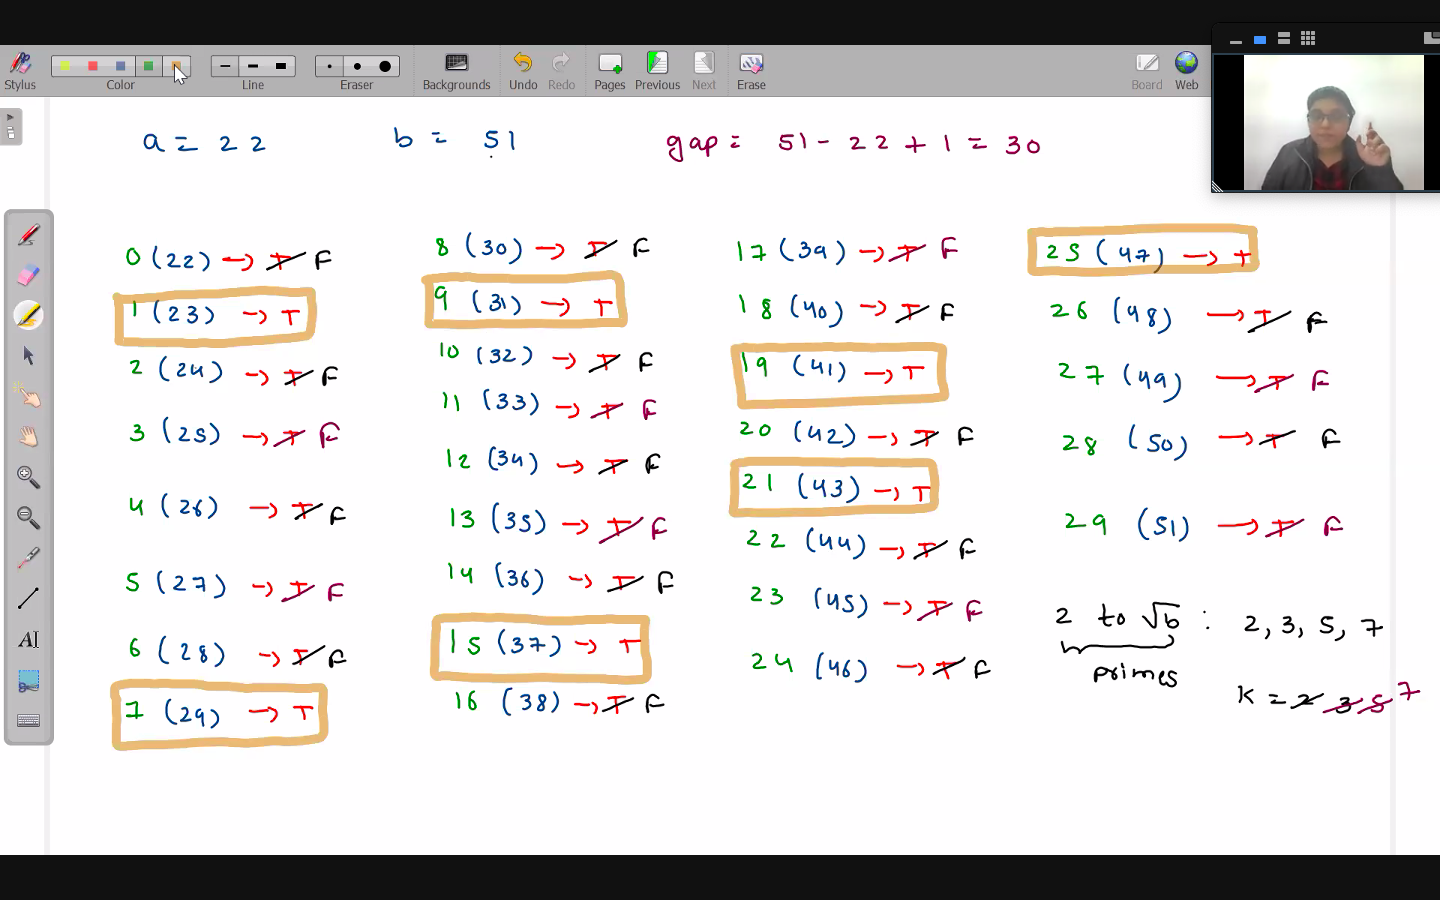 Stylus
Color
Line
Eraser
Backgrounds
Undo
Redo
Pages
Previous
Next
Erase
Board
Web
a = 22
b = 51
gap = 51 - 22 + 1 = 30
0 (22) → T F
1 (23) → T
2 (24) → T F
3 (25) → T F
4 (26) → T F
5 (27) → T F
6 (28) → T F
7 (29) → T
8 (30) → T F
9 (31) → T
10 (32) → T F
11 (33) → T F
12 (34) → T F
13 (35) → T F
14 (36) → T F
15 (37) → T
16 (38) → T F
17 (39) → T F
18 (40) → T F
19 (41) → T
20 (42) → T F
21 (43) → T
22 (44) → T F
23 (45) → T F
24 (46) → T F
25 (47) → T
26 (48) → T F
27 (49) → T F
28 (50) → T F
29 (51) → T F
2 to √b : 2, 3, 5, 7
primes
K = 2 3 5 7
AI